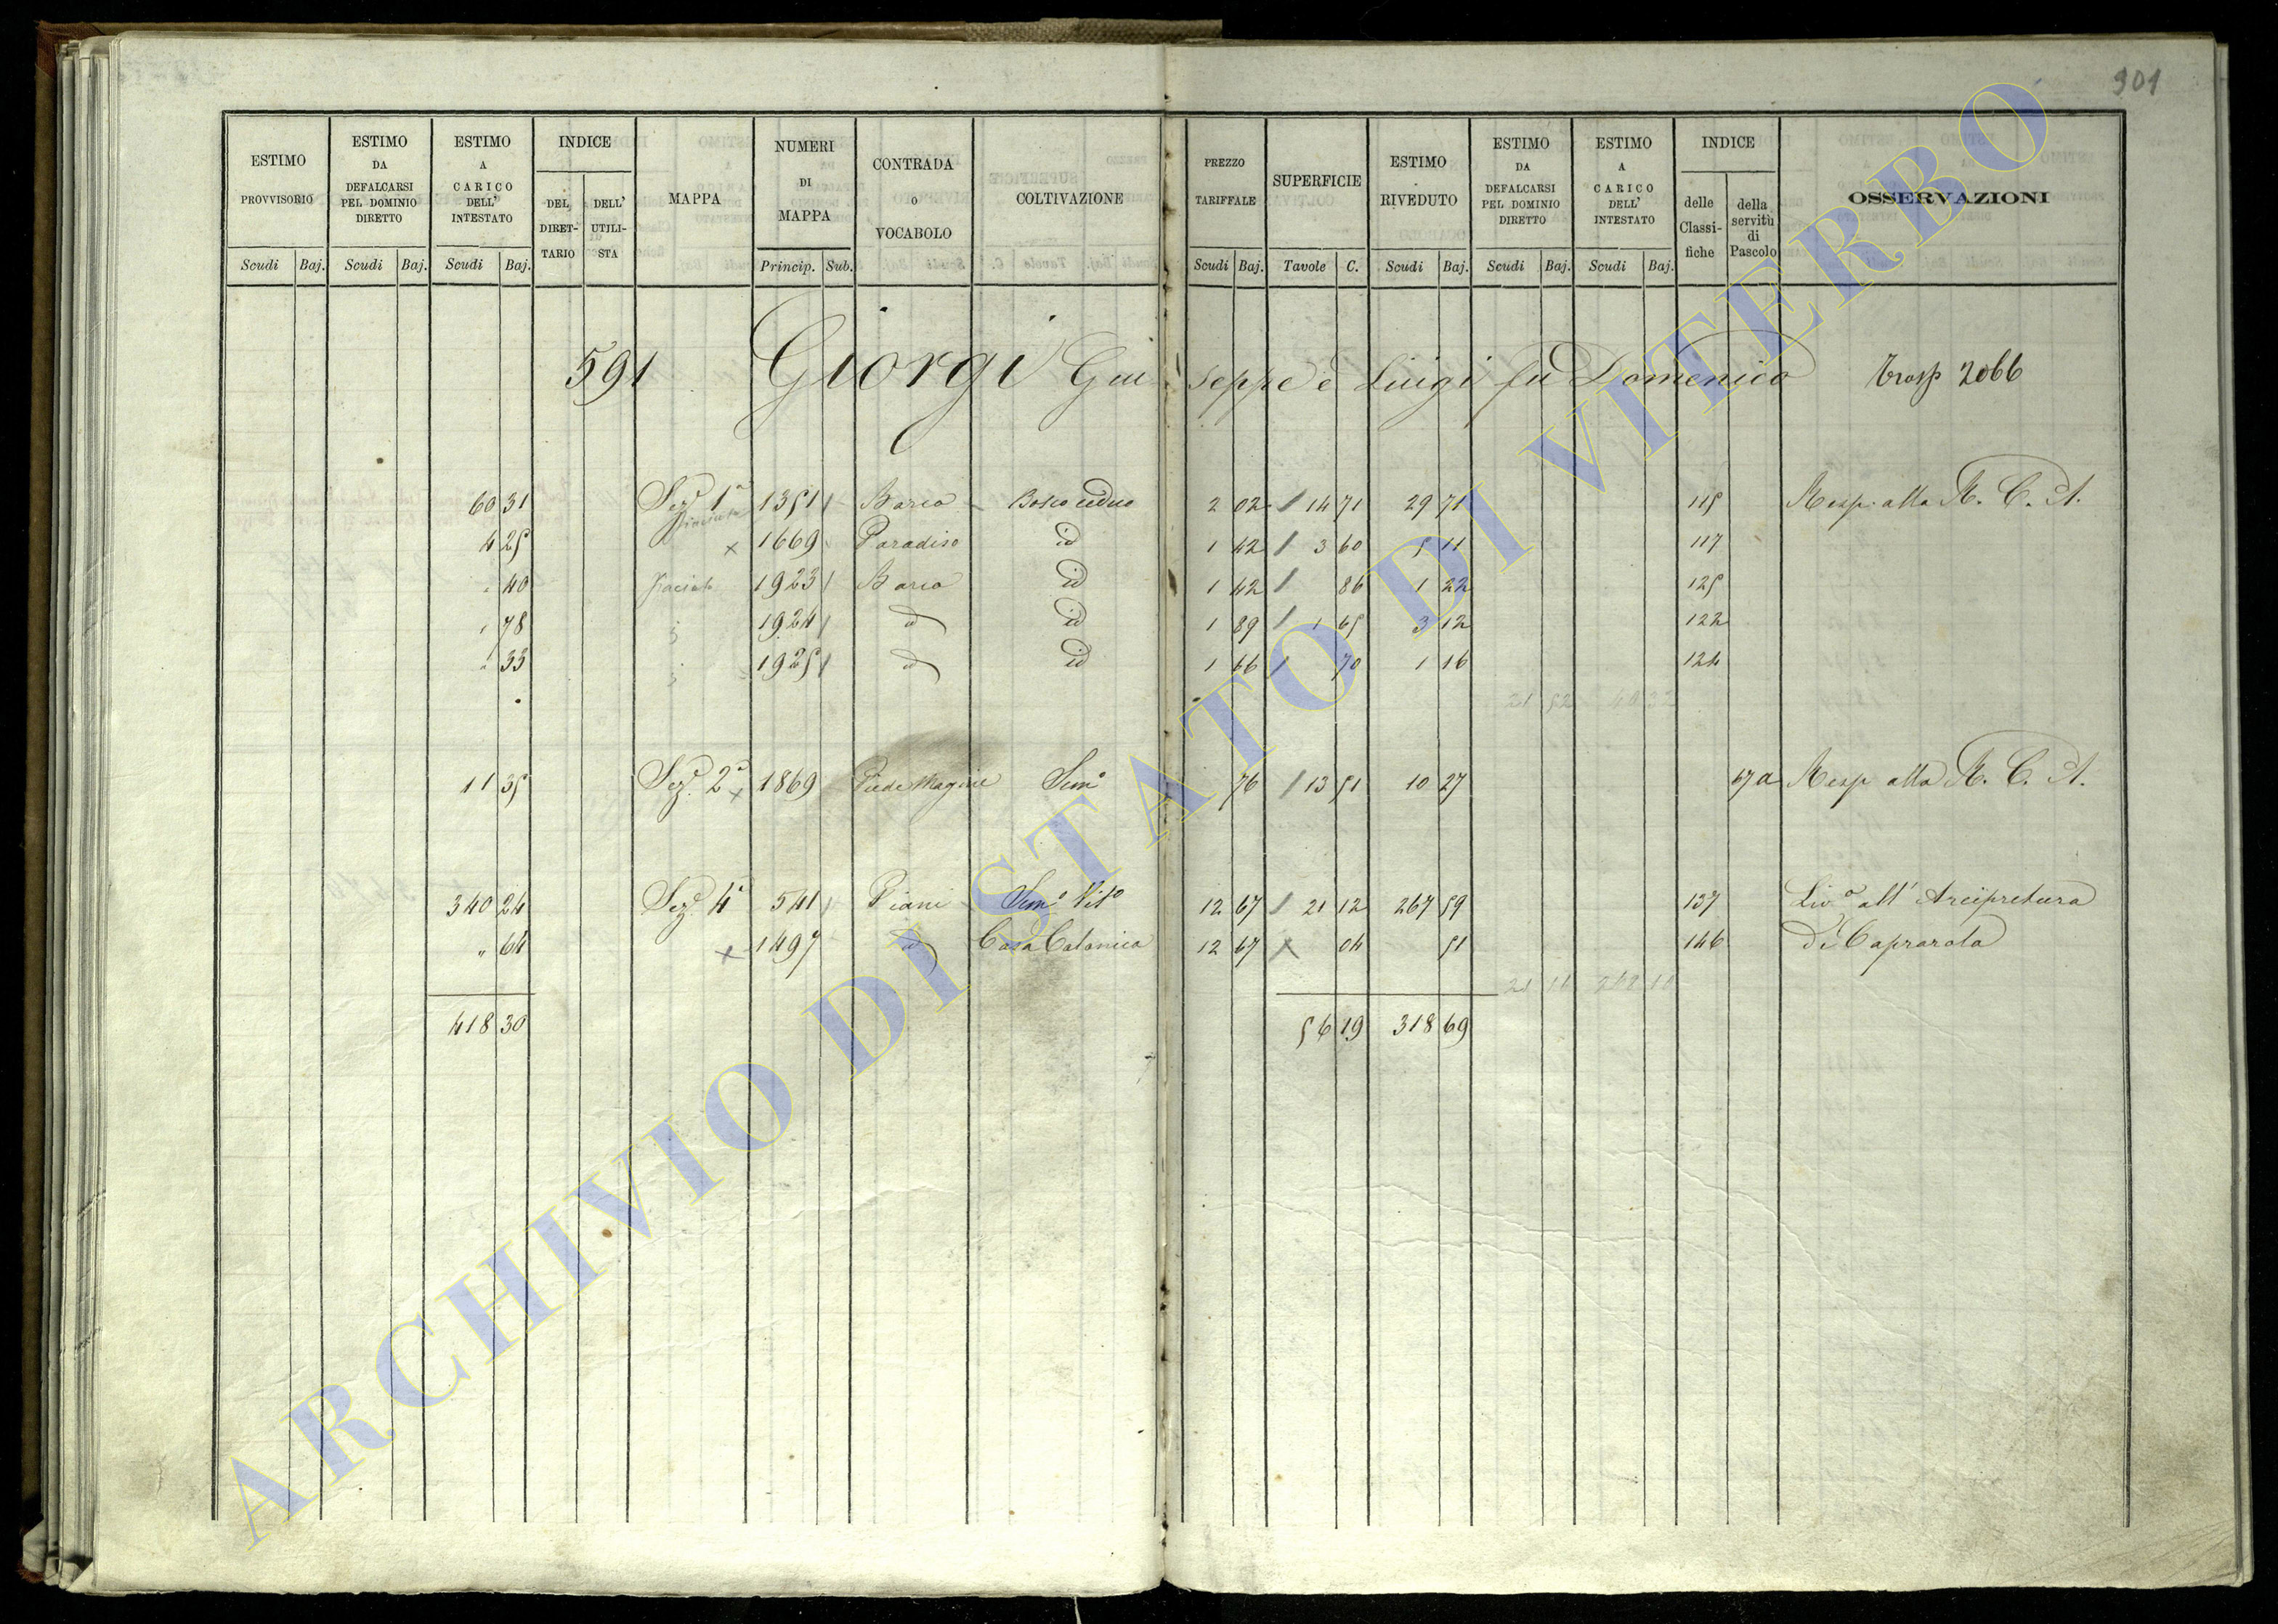 901
ESTIMO PROVVISORIO | ESTIMO DA DEFALCARSI PEL DOMINIO DIRETTO | ESTIMO A CARICO DELL' INTESTATO | INDICE DEL DIRET-TARIO | DELL' UTILI-STA | MAPPA | NUMERI DI MAPPA | CONTRADA O VOCABOLO | COLTIVAZIONE | PREZZO TARIFFALE | SUPERFICIE | ESTIMO RIVEDUTO | ESTIMO DA DEFALCARSI PEL DOMINIO DIRETTO | ESTIMO A CARICO DELL' INTESTATO | INDICE delle Classi-fiche | della servitù di Pascolo | OSSERVAZIONI
Scudi | Baj. | Scudi | Baj. | Scudi | Baj. | Princip. | Sub. | Scudi | Baj. | Tavole | C. | Scudi | Baj. | Scudi | Baj. | Scudi | Baj.
591 Giorgi Giuseppe e Luigi fu Domenico Trasp 2066
60 31 Sez.e 1a 1351 Barco Bosco ceduo 2 02 14 71 29 71 115 Resp. alla R. C. A.
4 25 x 1669 Paradiso id 1 42 3 60 5 11 117
" 40 1923 Barco id 1 42 86 1 22 125
" 78 1924 d id 1 89 1 65 3 12 122
" 33 1925 d id 1 66 70 1 16 124
21 52 40 32
11 35 Sez.e 2a x 1869 Sem.o 76 13 51 10 27 67 a Resp alla R. C. A.
340 24 Sez.e 4a 541 Piani Sem.o Vit.o 12 67 21 12 267 59 137 Liv.o all' Arcipretura
" 64 x 1497 d Casa Colonica 12 67 x 04 51 146 di Caprarola
21 16 268 10
418 30 56 19 318 69
ARCHIVIO DI STATO DI VITERBO